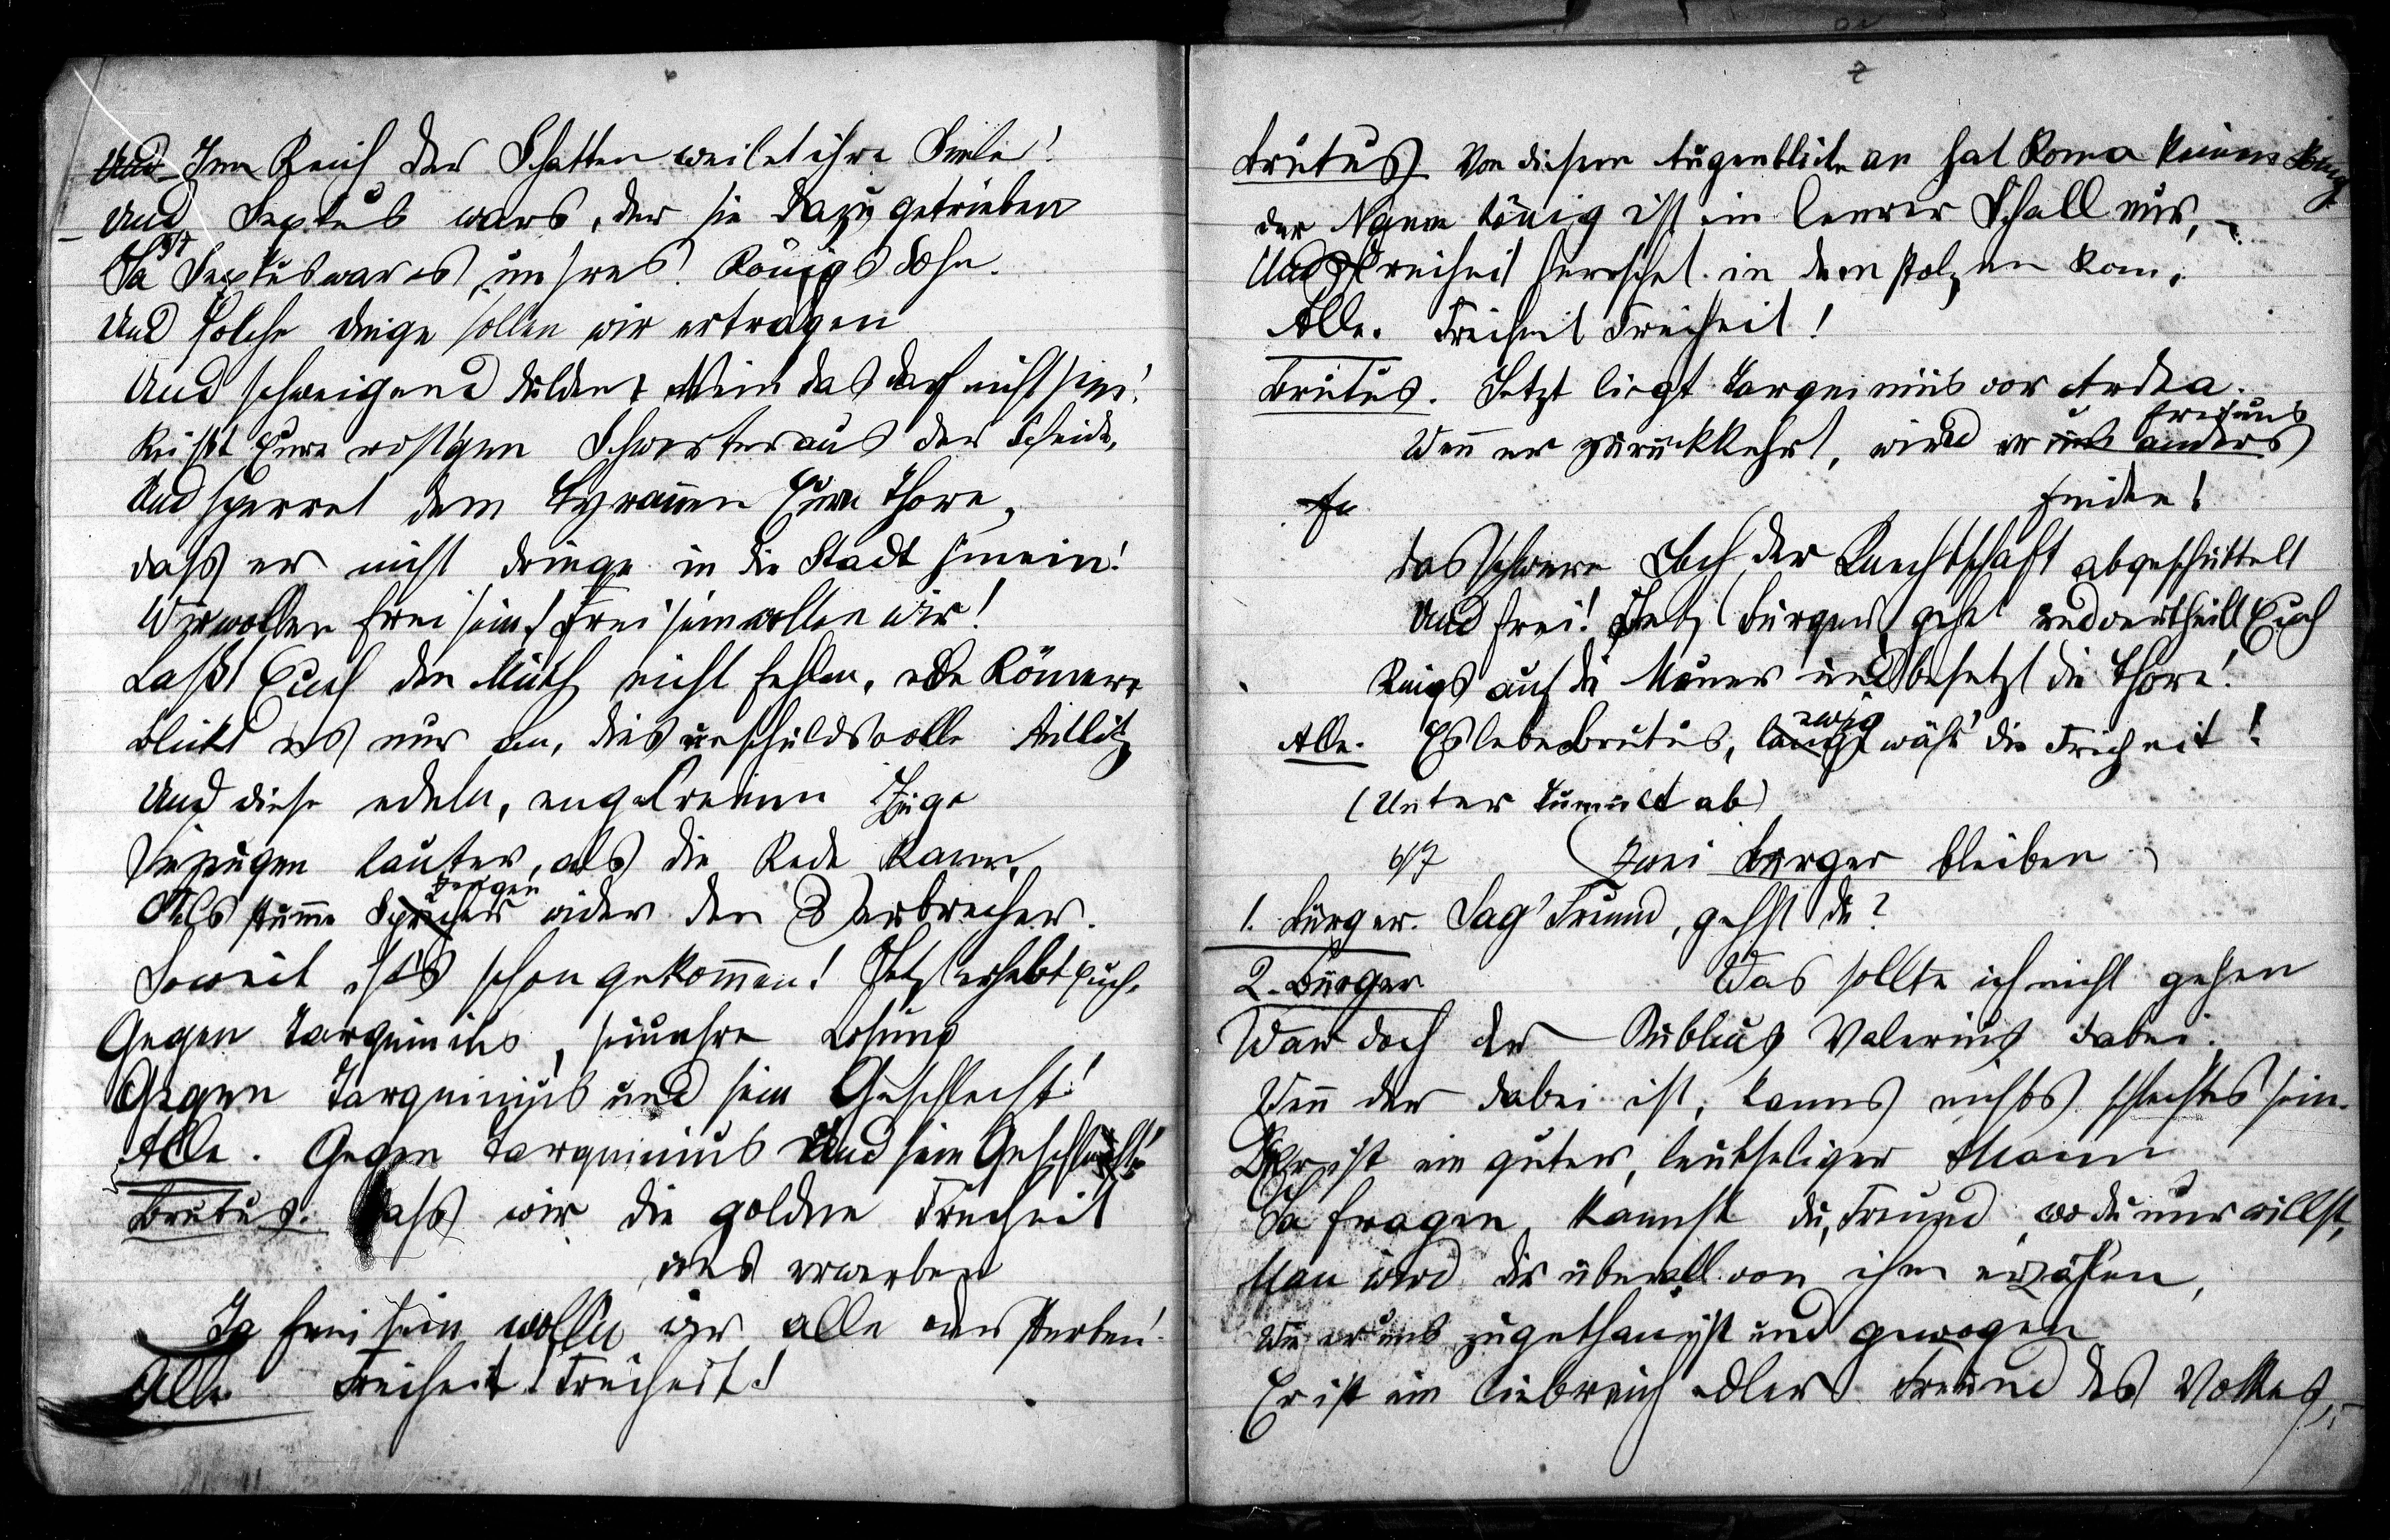 6
Im Reich der Schatten weilet ihre Seele!
Und Sextus wars, der sie dazu getrieben
Ja Sextus war es, unsres Königs Sohn.
Und solche Dinge sollen wir ertragen
Und schweigend dulden? Nein das darf nicht sein!
Reißt Eure rost'gen Schwerter aus der Scheide,
Und sperret dem Tyrannen Eure Thore,
dass er nicht dringe in die Stadt hinein!
Wir wollen frei sein! Frei sein wollen wir!
Laßt Euch den Muth nicht fehlen, edle Römer,
Blickt es nur an, dies unschuldsvolle Antlitz
Und diese edeln, engelreinen Züge
Sie zeugen lauter, als die Rede kann,
Als stumme Zeugen wider den Verbrecher.
Soweit ists schon gekommen! Jetzt erhebt Euch,
Gegen Tarquinius, sei unsre Losung
Gegen Tarquinius und sein Geschlecht!
Alle. Gegen Tarquinius Und sein Geschlecht!
Brutus. Lass wir die goldne Freiheit
uns erwerben
Ja frei sein wollen wir alle oder sterben!
Alle Freiheit! Freiheit!
7
Brutus Von diesem Augenblicke an hat Roma keinen König
der Name König ist ein leerer Schall nur,
Und Freiheit herrschet in dem stolzen Rom.
Alle. Freiheit Freiheit!
Brutus. Jetzt liegt Tarquinius vor Ardea.
Wenn er zurückkehrt, wird er uns anders
finden!
das schwere Joch der Knechtschaft abgeschüttelt
Und frei! Jetzt Bürger, gehet und vertheilt Euch
Rings auf die Mauer und besetzt die Thore!
Alle. Es lebe Brutus, ewig währ' die Freiheit!
(Unter Tumult ab)
6/7 (Zwei Bürger bleiben)
1. Bürger. Sag' Freund, gehst du?
2. Bürger Was sollte ich nicht gehen
War doch der Publius Valerius dabei.
Wenn der dabei ist, kanns nichts schlechtes sein.
Der ist ein guter, leutseliger Mann
Da fragen kannst du, Freund, wo du nur willst,
Man wird dir überall von ihm erzählen,
Wie er uns zugethan ist und gewogen
Er ist ein liebreich edler Freund des Volkes,